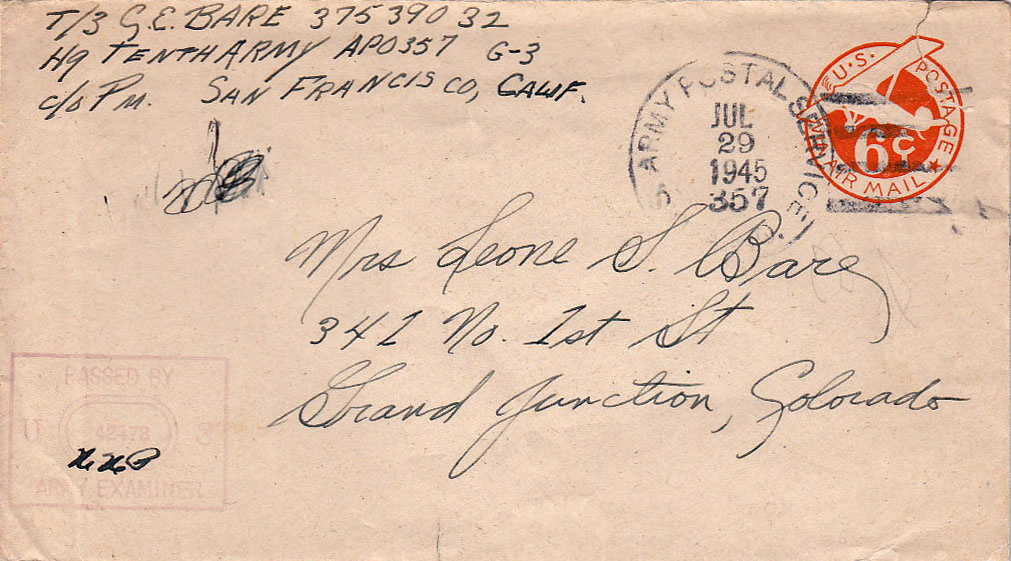 T/3 G.E. BARE 37539032
Hq TENTH ARMY APO357 G-3
c/o Pm. SAN FRANCISCO, CALIF.
U.S. POSTAGE
6¢
VIA AIR MAIL
ARMY POSTAL SERVICE
JUL
29
1945
357
Mrs Leone S. Bare
341 No. 1st St
Grand Junction, Colorado
PASSED BY
U S
42478
ARMY EXAMINER